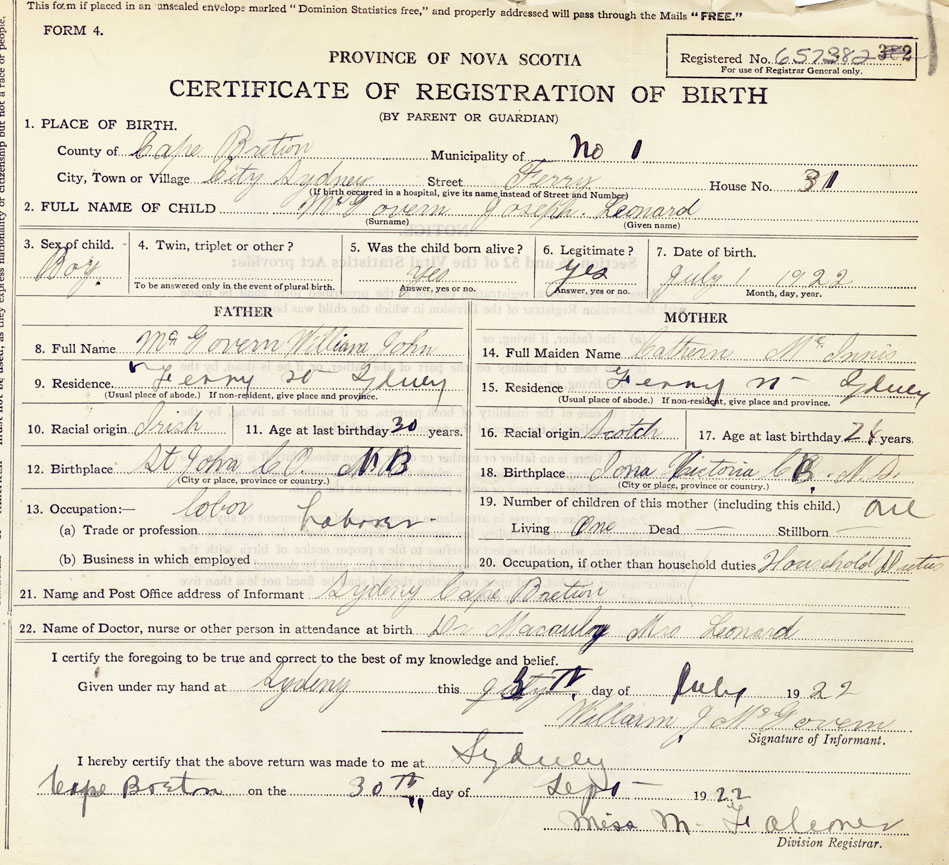 This form if placed in an unsealed envelope marked "Dominion Statistics free," and properly addressed will pass through the Mails "FREE."
FORM 4.
PROVINCE OF NOVA SCOTIA
Registered No. 657382
For use of Registrar General only.
CERTIFICATE OF REGISTRATION OF BIRTH
(BY PARENT OR GUARDIAN)
1. PLACE OF BIRTH.
County of Cape Bretion Municipality of No 1
City, Town or Village City Sydney Street Ferry House No. 31
(If birth occurred in a hospital, give its name instead of Street and Number)
2. FULL NAME OF CHILD McGovern Joseph. Leonard
(Surname) (Given name)
3. Sex of child. 4. Twin, triplet or other? 5. Was the child born alive? 6. Legitimate? 7. Date of birth.
Boy. yes yes July 1 1922
To be answered only in the event of plural birth. Answer, yes or no. Answer, yes or no. Month, day, year.
FATHER MOTHER
8. Full Name McGovern William John 14. Full Maiden Name Cathern McInnis
9. Residence. Ferry 15. Residence Ferry
(Usual place of abode.) If non-resident, give place and province. (Usual place of abode.) If non-resident, give place and province.
10. Racial origin Irish 11. Age at last birthday 30 years. 16. Racial origin Scotch 17. Age at last birthday 24 years.
12. Birthplace St John Co. N.B 18. Birthplace Iona Victoria
(City or place, province or country.) (City or place, province or country.)
13. Occupation:— labor 19. Number of children of this mother (including this child.) one
(a) Trade or profession Laborer Living One Dead — Stillborn
(b) Business in which employed 20. Occupation, if other than household duties Household Duties
21. Name and Post Office address of Informant Sydeny Cape Bretion
22. Name of Doctor, nurse or other person in attendance at birth Dr Macaulay Mrs Leonard
I certify the foregoing to be true and correct to the best of my knowledge and belief.
Given under my hand at Sydeny this day of July 1922
William J McGovern
Signature of Informant.
I hereby certify that the above return was made to me at Sydney
Cape Breton on the 30th day of Sept 1922
Miss M. Falconer
Division Registrar.